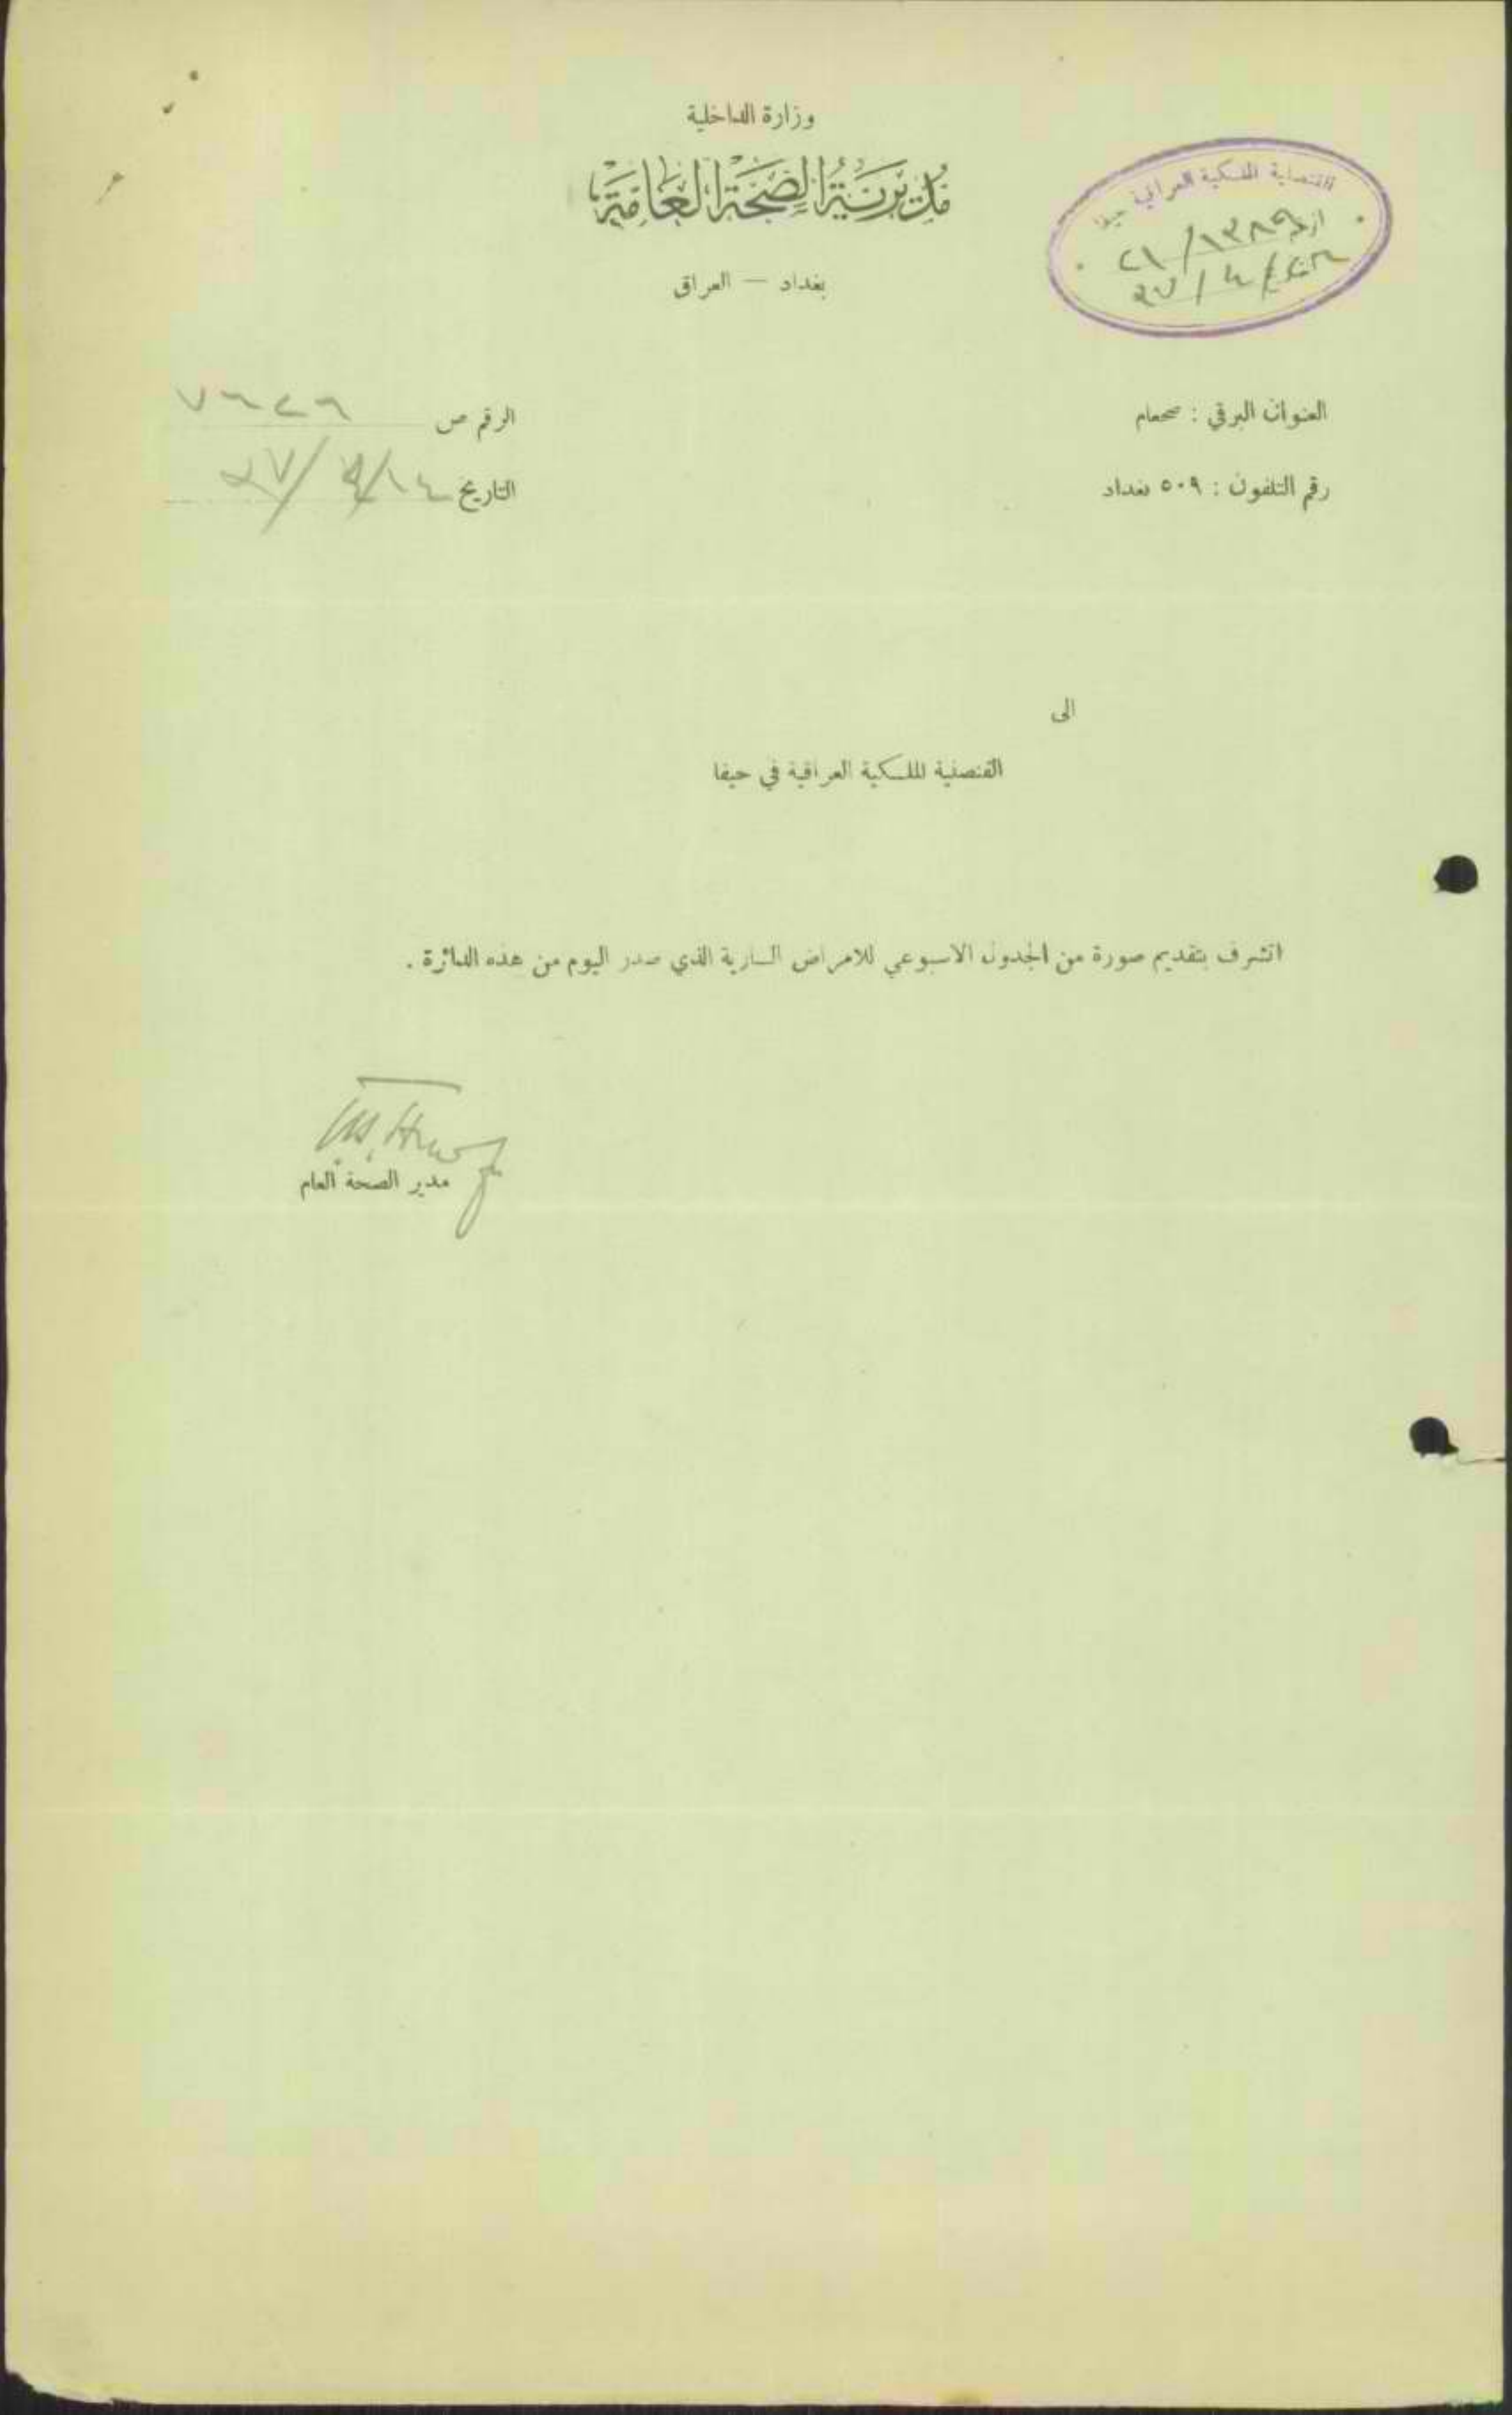 وزارة الداخلية
مديرية الصحة العامة
بغداد — العراق
القنصلية الملكية العراقية حيفا
العنوان البرقي : صحعام
الرقم ص ٧٦٢٦
رقم التلفون : ٥٠٩ بغداد
التاريخ
الى
القنصلية الملكية العراقية في حيفا
اتشرف بتقديم صورة من الجدول الاسبوعي للامراض السارية الذي صدر اليوم من هذه الدائرة .
مدير الصحة العام